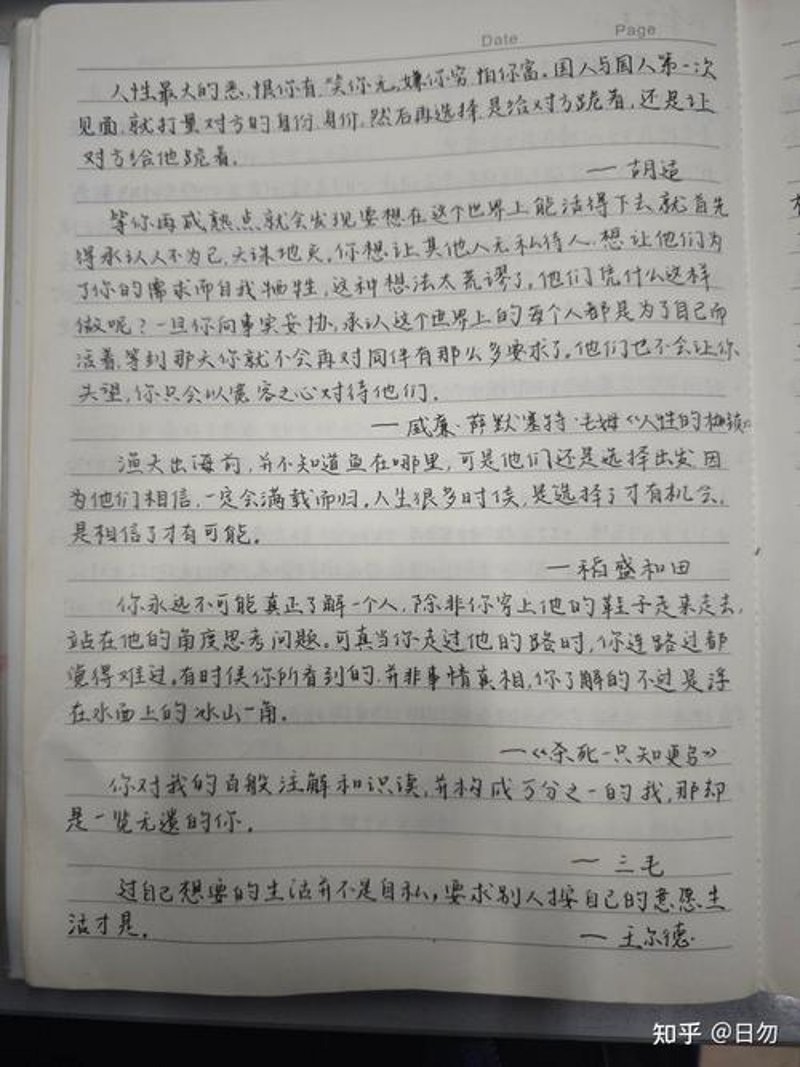 Date Page
人性最大的恶,恨你有,笑你无,嫌你穷,怕你富。国人与国人第一次
见面,就打量对方的身份,身价,然后再选择,是给对方跪着,还是让
对方给他跪着。
— 胡适
等你再成熟点,就会发现要想在这个世界上能活得下去,就首先
得承认人不为己,天诛地灭。你想让其他人无私待人,想让他们为
了你的需求而自我牺牲,这种想法太荒谬了,他们凭什么这样
做呢?一旦你向事实妥协,承认这个世界上的每个人都是为了自己而
活着,等到那天你就不会再对同伴有那么多要求了。他们也不会让你
失望,你只会以宽容之心对待他们。
— 威廉·萨默塞特·毛姆《人性的枷锁》
渔夫出海前,并不知道鱼在哪里,可是他们还是选择出发,因
为他们相信,一定会满载而归。人生很多时候,是选择了才有机会,
是相信了才有可能。
— 稻盛和田
你永远不可能真正了解一个人,除非你穿上他的鞋子走来走去,
站在他的角度思考问题。可真当你走过他的路时,你连路过都
觉得难过。有时候你所看到的,并非事情真相,你了解的不过是浮
在水面上的冰山一角。
—《杀死一只知更鸟》
你对我的百般注解和识读,并构成万分之一的我,那却
是一览无遗的你。
— 三毛
过自己想要的生活并不是自私,要求别人按自己的意愿生
活才是。
— 王尔德
知乎 @日勿